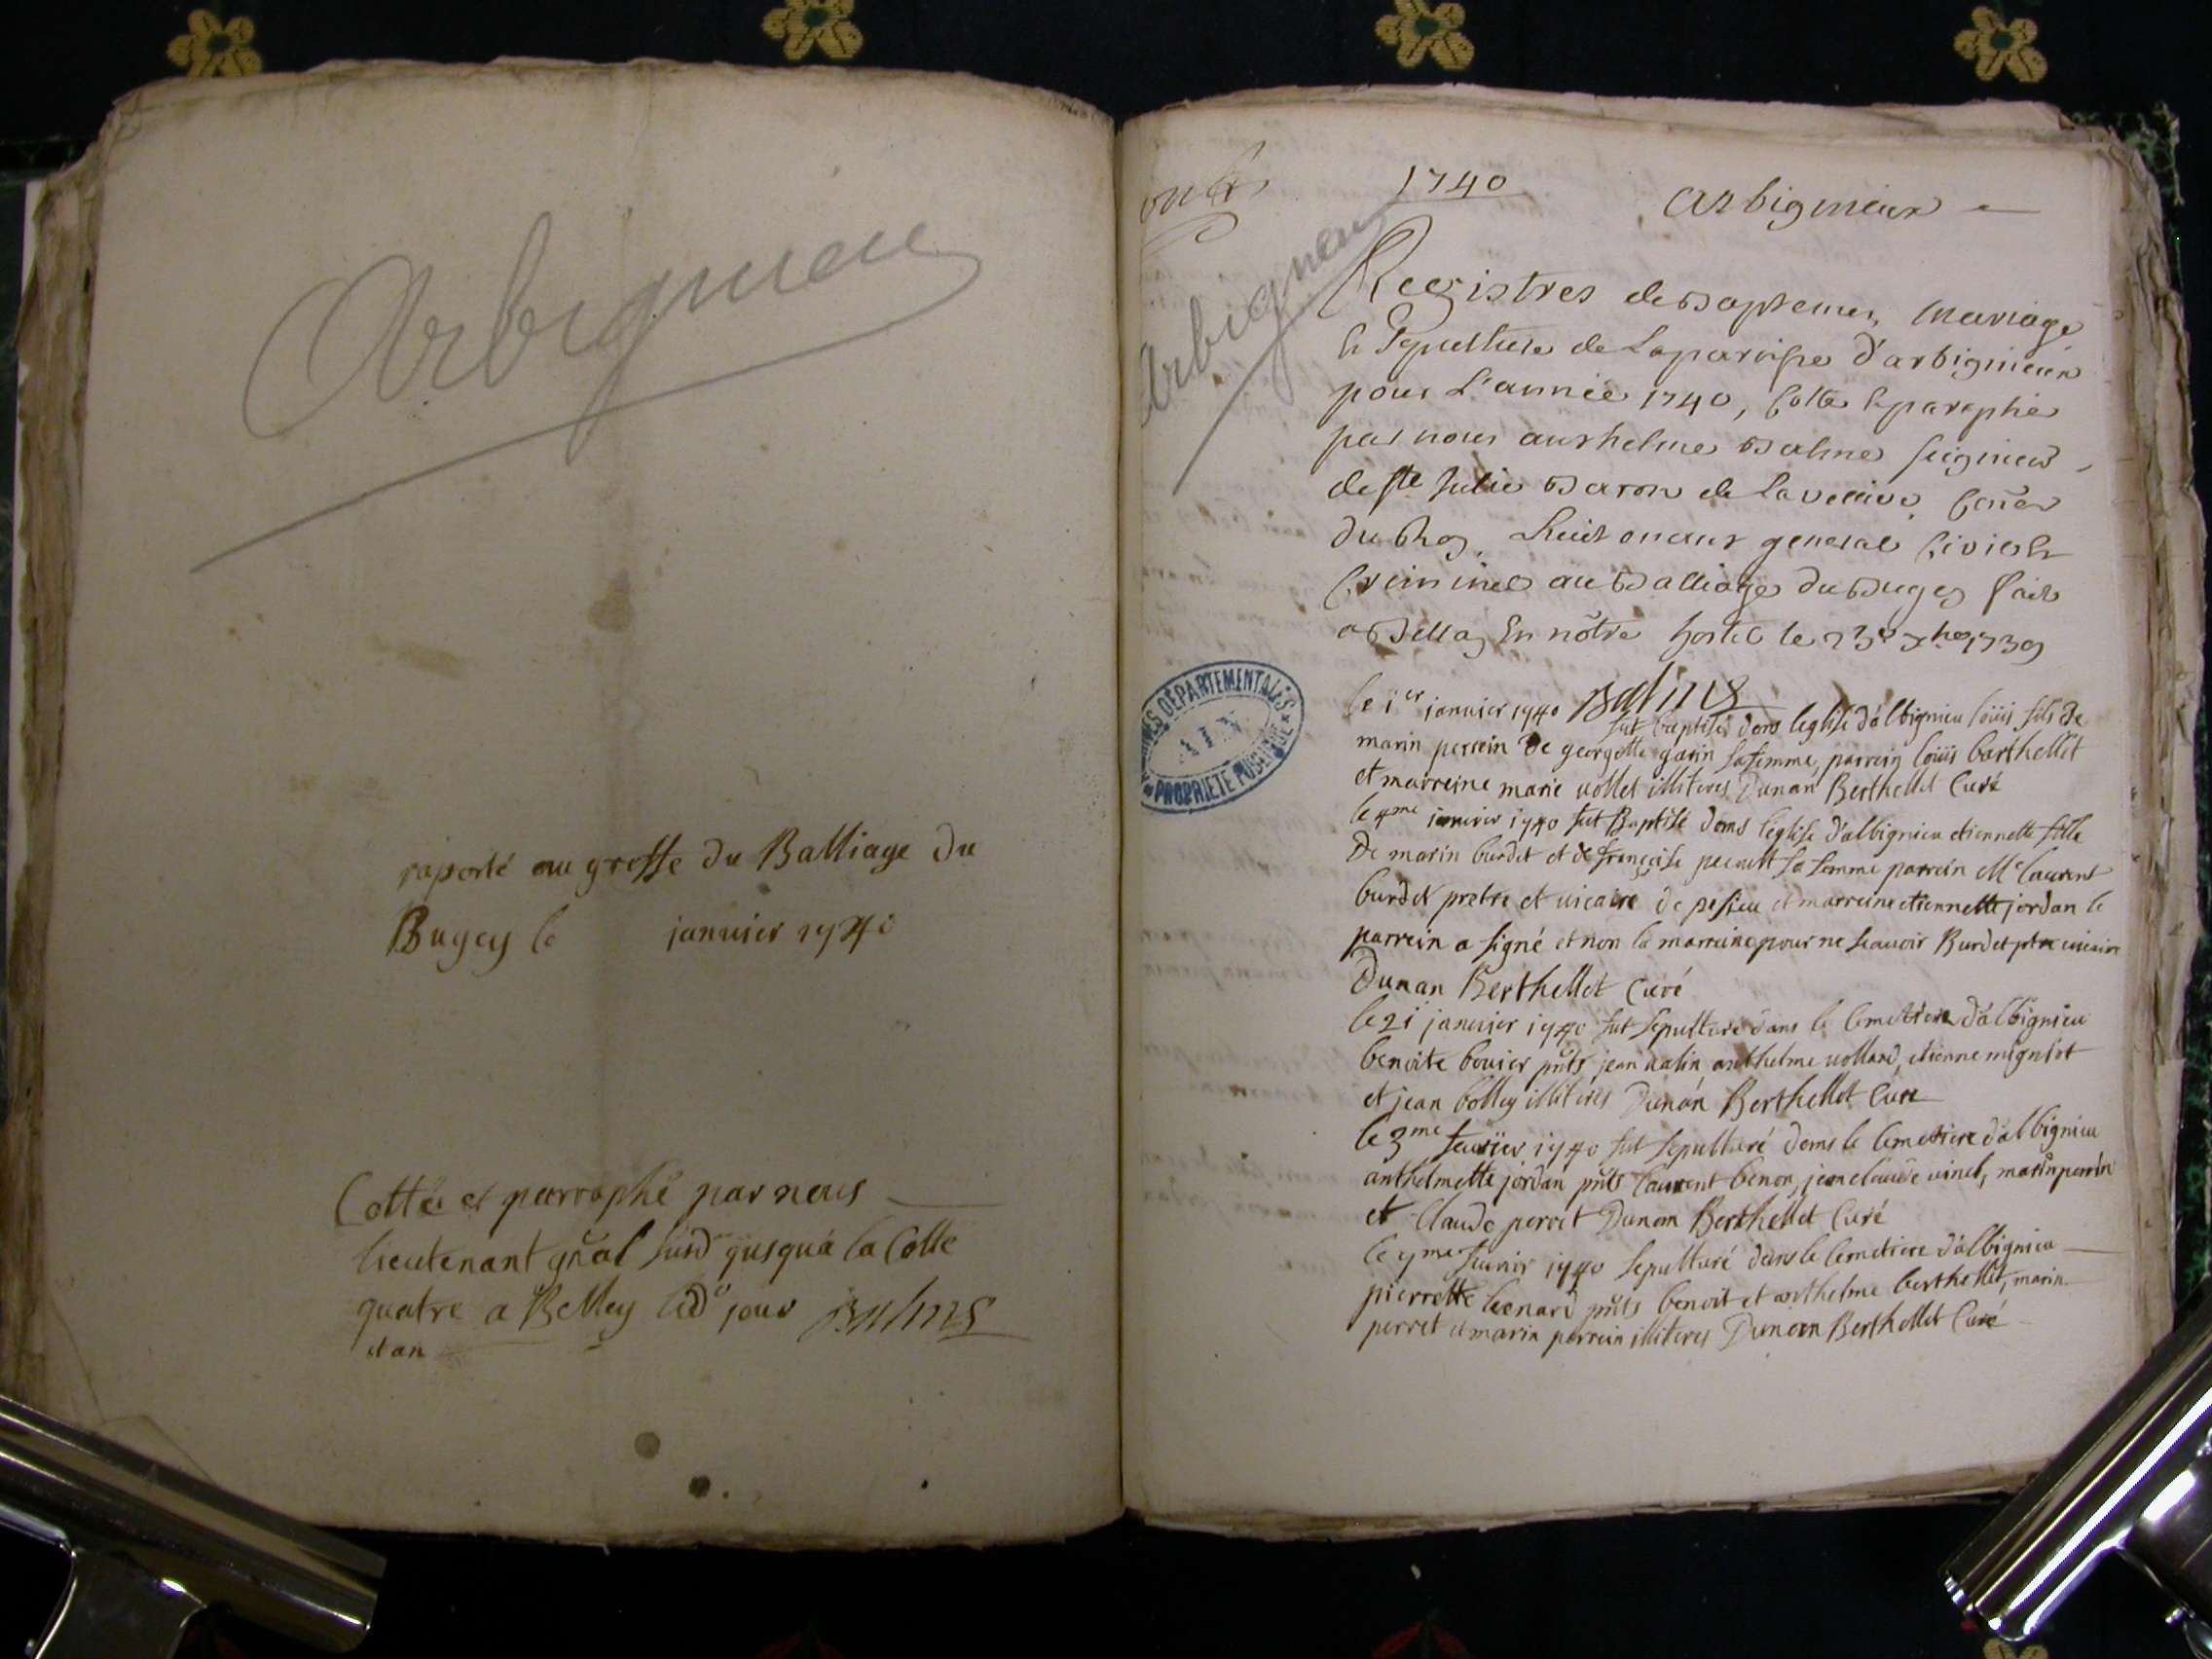 Arbignieu
raporté au greffe du Balliage du
Bugey le janvier 1740
Cotté et parraphé par nous
lieutenant gñal susd jusqu'à la Cotte
quatre a Belley led jour Balme
et an
1740
Arbignieux
Arbignieu
Registres de Baptemes, Mariage
& Sepulture de La paroisse d'arbignieux
pour L'année 1740, Cotté & paraphé
par nous anthelme Balme seigneur
de Ste Julie Baron de Coñer
du Roy, Lieutenant general Civil &
Criminel au Balliage du Bugey fait
a Belley En nôtre hostel le 1739
Balme
le 1er janvier 1740 fut baptisé dans leglise d'albignieu loüis fils de
marin perrein de georgette garin sa femme, parrein loüis barthellet
et marreine marie vollet illiteres Dunan Berthellet Curé
le 4me janvier 1740 fut Baptisé dans leglise d'albignieu etiennette fille
De marin burdet et de françoise sa femme parrein Mre laurent
burdet pretre et vicaire de et marreine etiennette jordan le
parrein a signé et non la marreine pour ne scavoir Burdet ptre vicaire
Dunan Berthellet Curé
le 21 janvier 1740 fut sepulturé dans le Cemetiere d'albignieu
benoite bouier pñts jean anthelme vollard, etienne
et jean bolley illiteres Dunan Berthellet Curé
le 3me fevrier 1740 fut sepulturé dans le Cemetiere d'albignieu
anthelmette jordan pñts laurent benon, jean claude vinet, marin perrin
et Claude perret Dunan Berthellet Curé
le fevrier 1740 sepulturé dans le Cemetiere d'albignieu
pierrette pñts benoit et anthelme berthellet, marin
perret et marin perrein illiteres Dunan Berthellet Curé
ARCHIVES DÉPARTEMENTALES
AIN
PROPRIÉTÉ PUBLIQUE